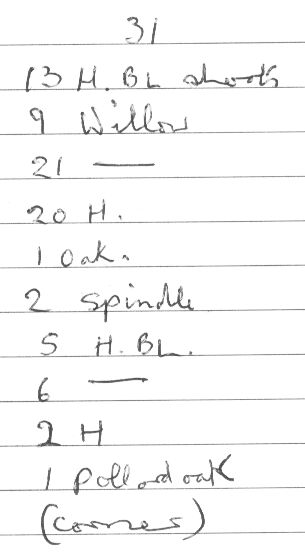 31
13 H. BL shoots
9 Willow
21 —
20 H.
1 Oak.
2 Spindle
5 H. BL.
6 —
2 H
1 pollard oak
(corner)